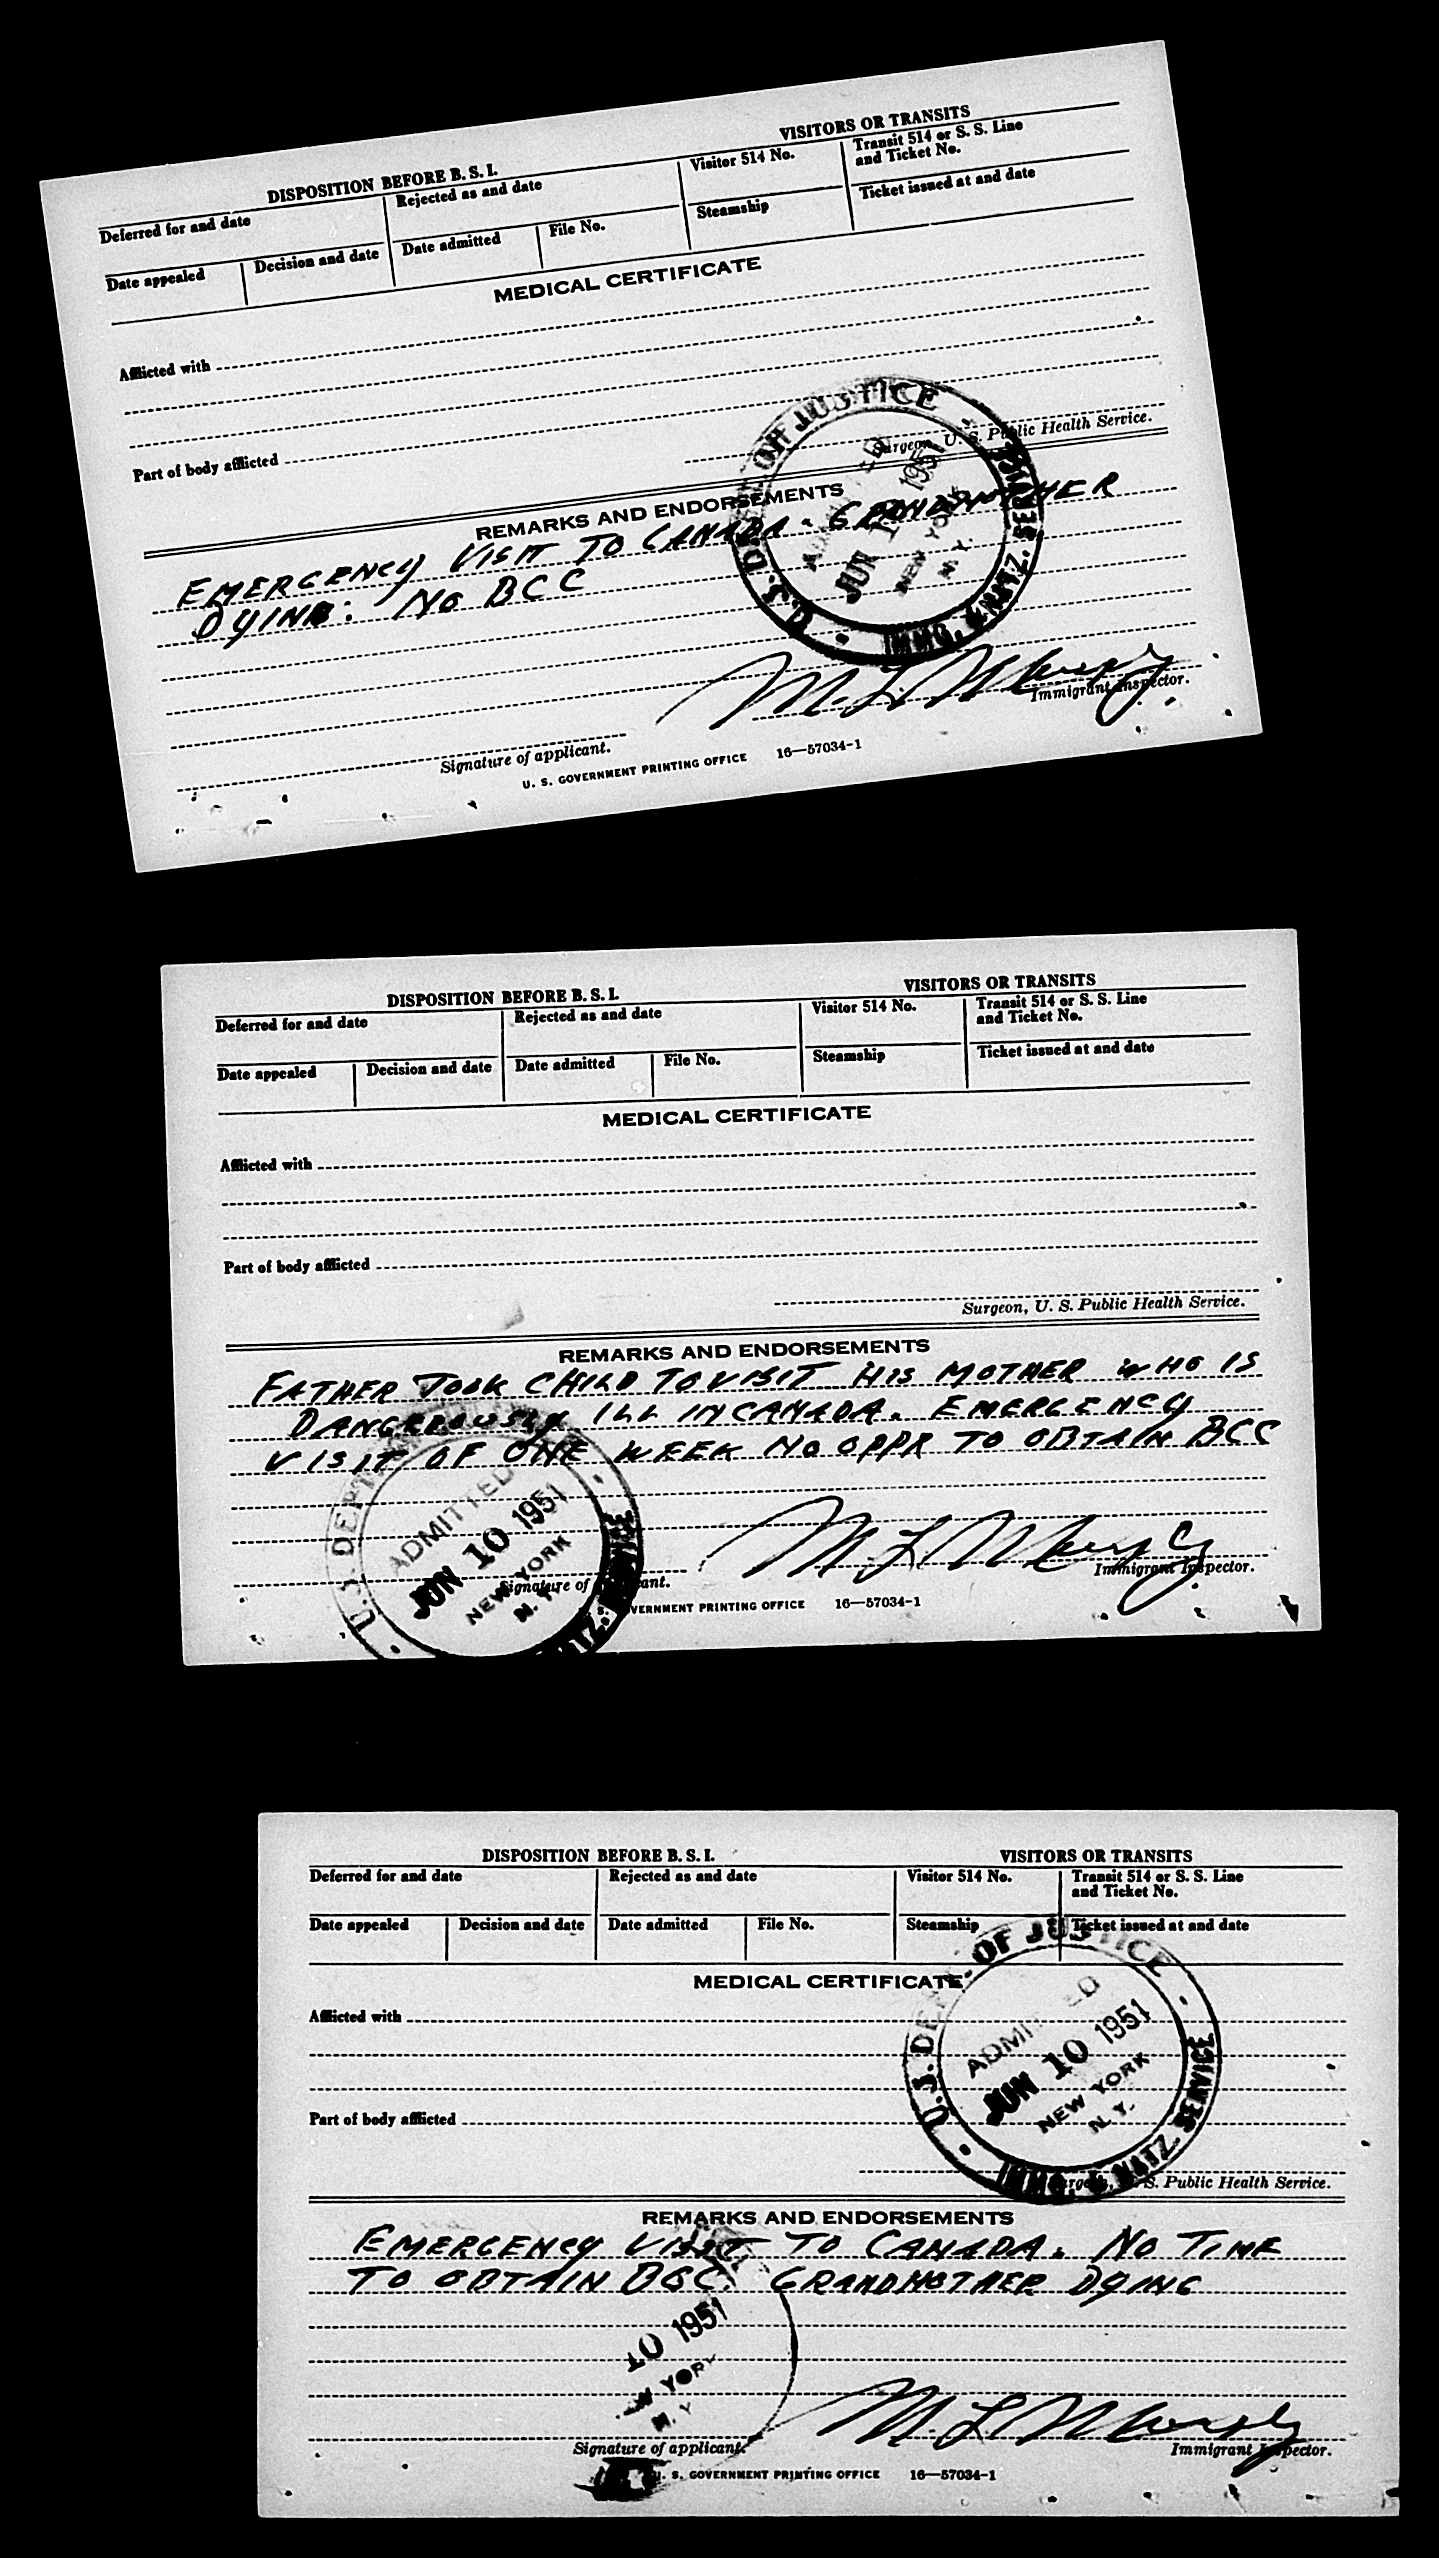 DISPOSITION BEFORE B. S. I.
VISITORS OR TRANSITS
Deferred for and date
Rejected as and date
Visitor 514 No.
Transit 514 or S. S. Line
and Ticket No.
Date appealed
Decision and date
Date admitted
File No.
Steamship
Ticket issued at and date
MEDICAL CERTIFICATE
Afflicted with
Part of body afflicted
Surgeon, U. S. Public Health Service.
REMARKS AND ENDORSEMENTS
EMERGENCY VISIT TO CANADA - GRANDMOTHER
DYING: NO BCC
U.S. DEPT. OF JUSTICE
ADMITTED
JUN 10 1951
NEW YORK
N. Y.
IMMG. & NATZ. SERVICE
M. L. Murphy
Immigrant Inspector.
Signature of applicant.
U. S. GOVERNMENT PRINTING OFFICE 16—57034-1
DISPOSITION BEFORE B. S. I.
VISITORS OR TRANSITS
Deferred for and date
Rejected as and date
Visitor 514 No.
Transit 514 or S. S. Line
and Ticket No.
Date appealed
Decision and date
Date admitted
File No.
Steamship
Ticket issued at and date
MEDICAL CERTIFICATE
Afflicted with
Part of body afflicted
Surgeon, U. S. Public Health Service.
REMARKS AND ENDORSEMENTS
FATHER TOOK CHILD TO VISIT HIS MOTHER WHO IS
DANGEROUSLY ILL IN CANADA. EMERGENCY
VISIT OF ONE WEEK NO OPPR TO OBTAIN BCC
U.S. DEPT.
ADMITTED
JUN 10 1951
NEW YORK
N. Y.
NATZ. SERVICE
M L Murphy
Immigrant Inspector.
Signature of applicant.
U. S. GOVERNMENT PRINTING OFFICE 16—57034-1
DISPOSITION BEFORE B. S. I.
VISITORS OR TRANSITS
Deferred for and date
Rejected as and date
Visitor 514 No.
Transit 514 or S. S. Line
and Ticket No.
Date appealed
Decision and date
Date admitted
File No.
Steamship
Ticket issued at and date
MEDICAL CERTIFICATE
Afflicted with
U.S. DEPT. OF JUSTICE
ADMITTED
JUN 10 1951
NEW YORK
N. Y.
IMMG. & NATZ. SERVICE
Part of body afflicted
Surgeon, U. S. Public Health Service.
REMARKS AND ENDORSEMENTS
EMERGENCY VISIT TO CANADA. NO TIME
TO OBTAIN BCC. GRANDMOTHER DYING
10 1951
NEW YORK
N. Y
M. L. Murphy
Signature of applicant.
Immigrant Inspector.
U. S. GOVERNMENT PRINTING OFFICE 16—57034-1